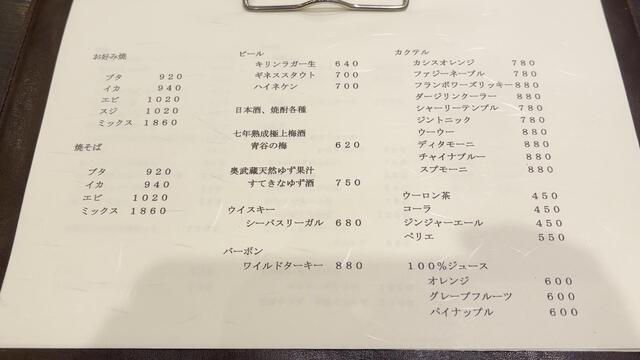 お好み焼
ブタ 920
イカ 940
エビ 1020
スジ 1020
ミックス 1860
焼そば
ブタ 920
イカ 940
エビ 1020
ミックス 1860
ビール
キリンラガー生 640
ギネススタウト 700
ハイネケン 700
日本酒、焼酎各種
七年熟成極上梅酒
青谷の梅 620
奥武蔵天然ゆず果汁
すてきなゆず酒 750
ウイスキー
シーバスリーガル 680
バーボン
ワイルドターキー 880
カクテル
カシスオレンジ 780
ファジーネーブル 780
フランボワーズリッキー 880
ダージリンクーラー 880
シャーリーテンプル 780
ジントニック 780
ウーウー 880
ディタモーニ 880
チャイナブルー 880
スプモーニ 880
ウーロン茶 450
コーラ 450
ジンジャーエール 450
ペリエ 550
100%ジュース
オレンジ 600
グレープフルーツ 600
パイナップル 600